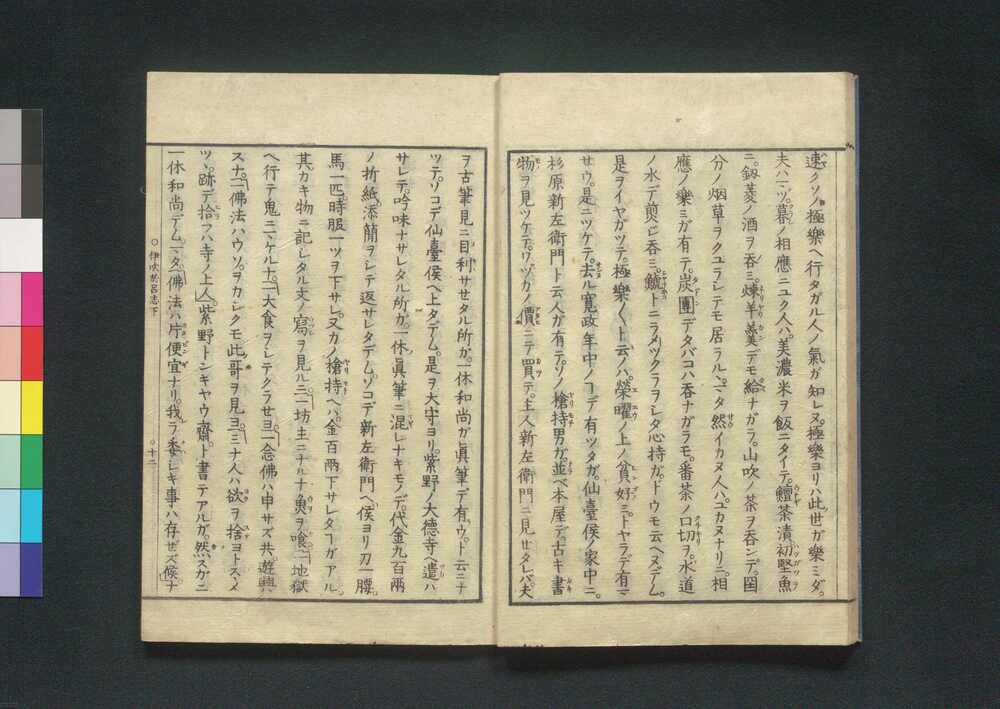 速クソノ極樂ヘ行タガル人ノ氣ガ知レヌ。極樂ヨリハ此世ガ樂ミダ。
夫ハマヅ。暮ノ相應ニユク人ハ。美濃米ヲ飯ニタイテ。鱣茶漬初堅魚
ニ。釼菱ノ酒ヲ呑ミ。煉羊羹デモ給ナガラ。山吹ノ茶ヲ呑ンデ。国
分ノ烟草ヲクユラシテモ居ラル。マタ然イカヌ人ハ。ユカヌナリニ相
應ノ樂ミガ有テ。炭團デタバコハ呑ナガラモ。番茶ノ口切ヲ。水道
ノ水デ煎ジ呑ミ。鰄トニラメツクラヲシタ心持ガ。トウモ云ヘヌデム。
是ヲイヤガツテ。極樂〱ト云ノハ。榮曜ノ上ノ貧好ミトヤラデ有マ
サウ。是ニツケテ。去ル寛政年中ノヿデ有ツタガ。仙臺侯ノ家中ニ。
杉原新左衛門ト云人ガ有テ。ソノ槍持男ガ。並ベ本屋デ。古キ書
物ヲ見ツケテ。ワヅカノ價ニテ買テ。主人新左衛門ニ見セタレバ。夫
ヲ古筆見ニ目利サセタル所ガ。一休和尚ガ眞筆デ有ウ。ト云ニナ
ツテ。ソコデ仙臺侯ヘ上タデム。是ヲ大守ヨリ。紫野ノ大德寺ヘ遣ハ
サレテ。吟味ナサレタル所ガ。一休眞筆ニ混レナキモノデ。代金九百兩
ノ折紙。添簡ヲシテ返サレタデム。ソコデ新左衛門ヘ。侯ヨリ刀一腰。
馬一匹。時服一ツヲ下サレ。又カノ槍持ヘハ。金百兩下サレタヿガアル。
其カキ物ニ記シタル文ノ寫ヲ見ルニ。「坊主ニナルナ魚ヲ喰。「地獄
ヘ行テ鬼ニマケルナ。「大食ヲシテクラセヨ。「念佛ハ申サズ共。遊興
スナ。「佛法ハウソ。ヲカシクモ此哥ヲ見ヨ。「ミナ人ハ欲ヲ捨ヨトスヽメ
ツヽ。跡デ拾フハ寺ノ上人。」紫野トンキヤウ齋。ト書テアルガ。然スガニ
一休和尚デム。マタ「佛法ハ片便宜ナリ。我ラ委シキ事ハ存ゼズ候。ナ
〇伊吹於呂志下
〇十二